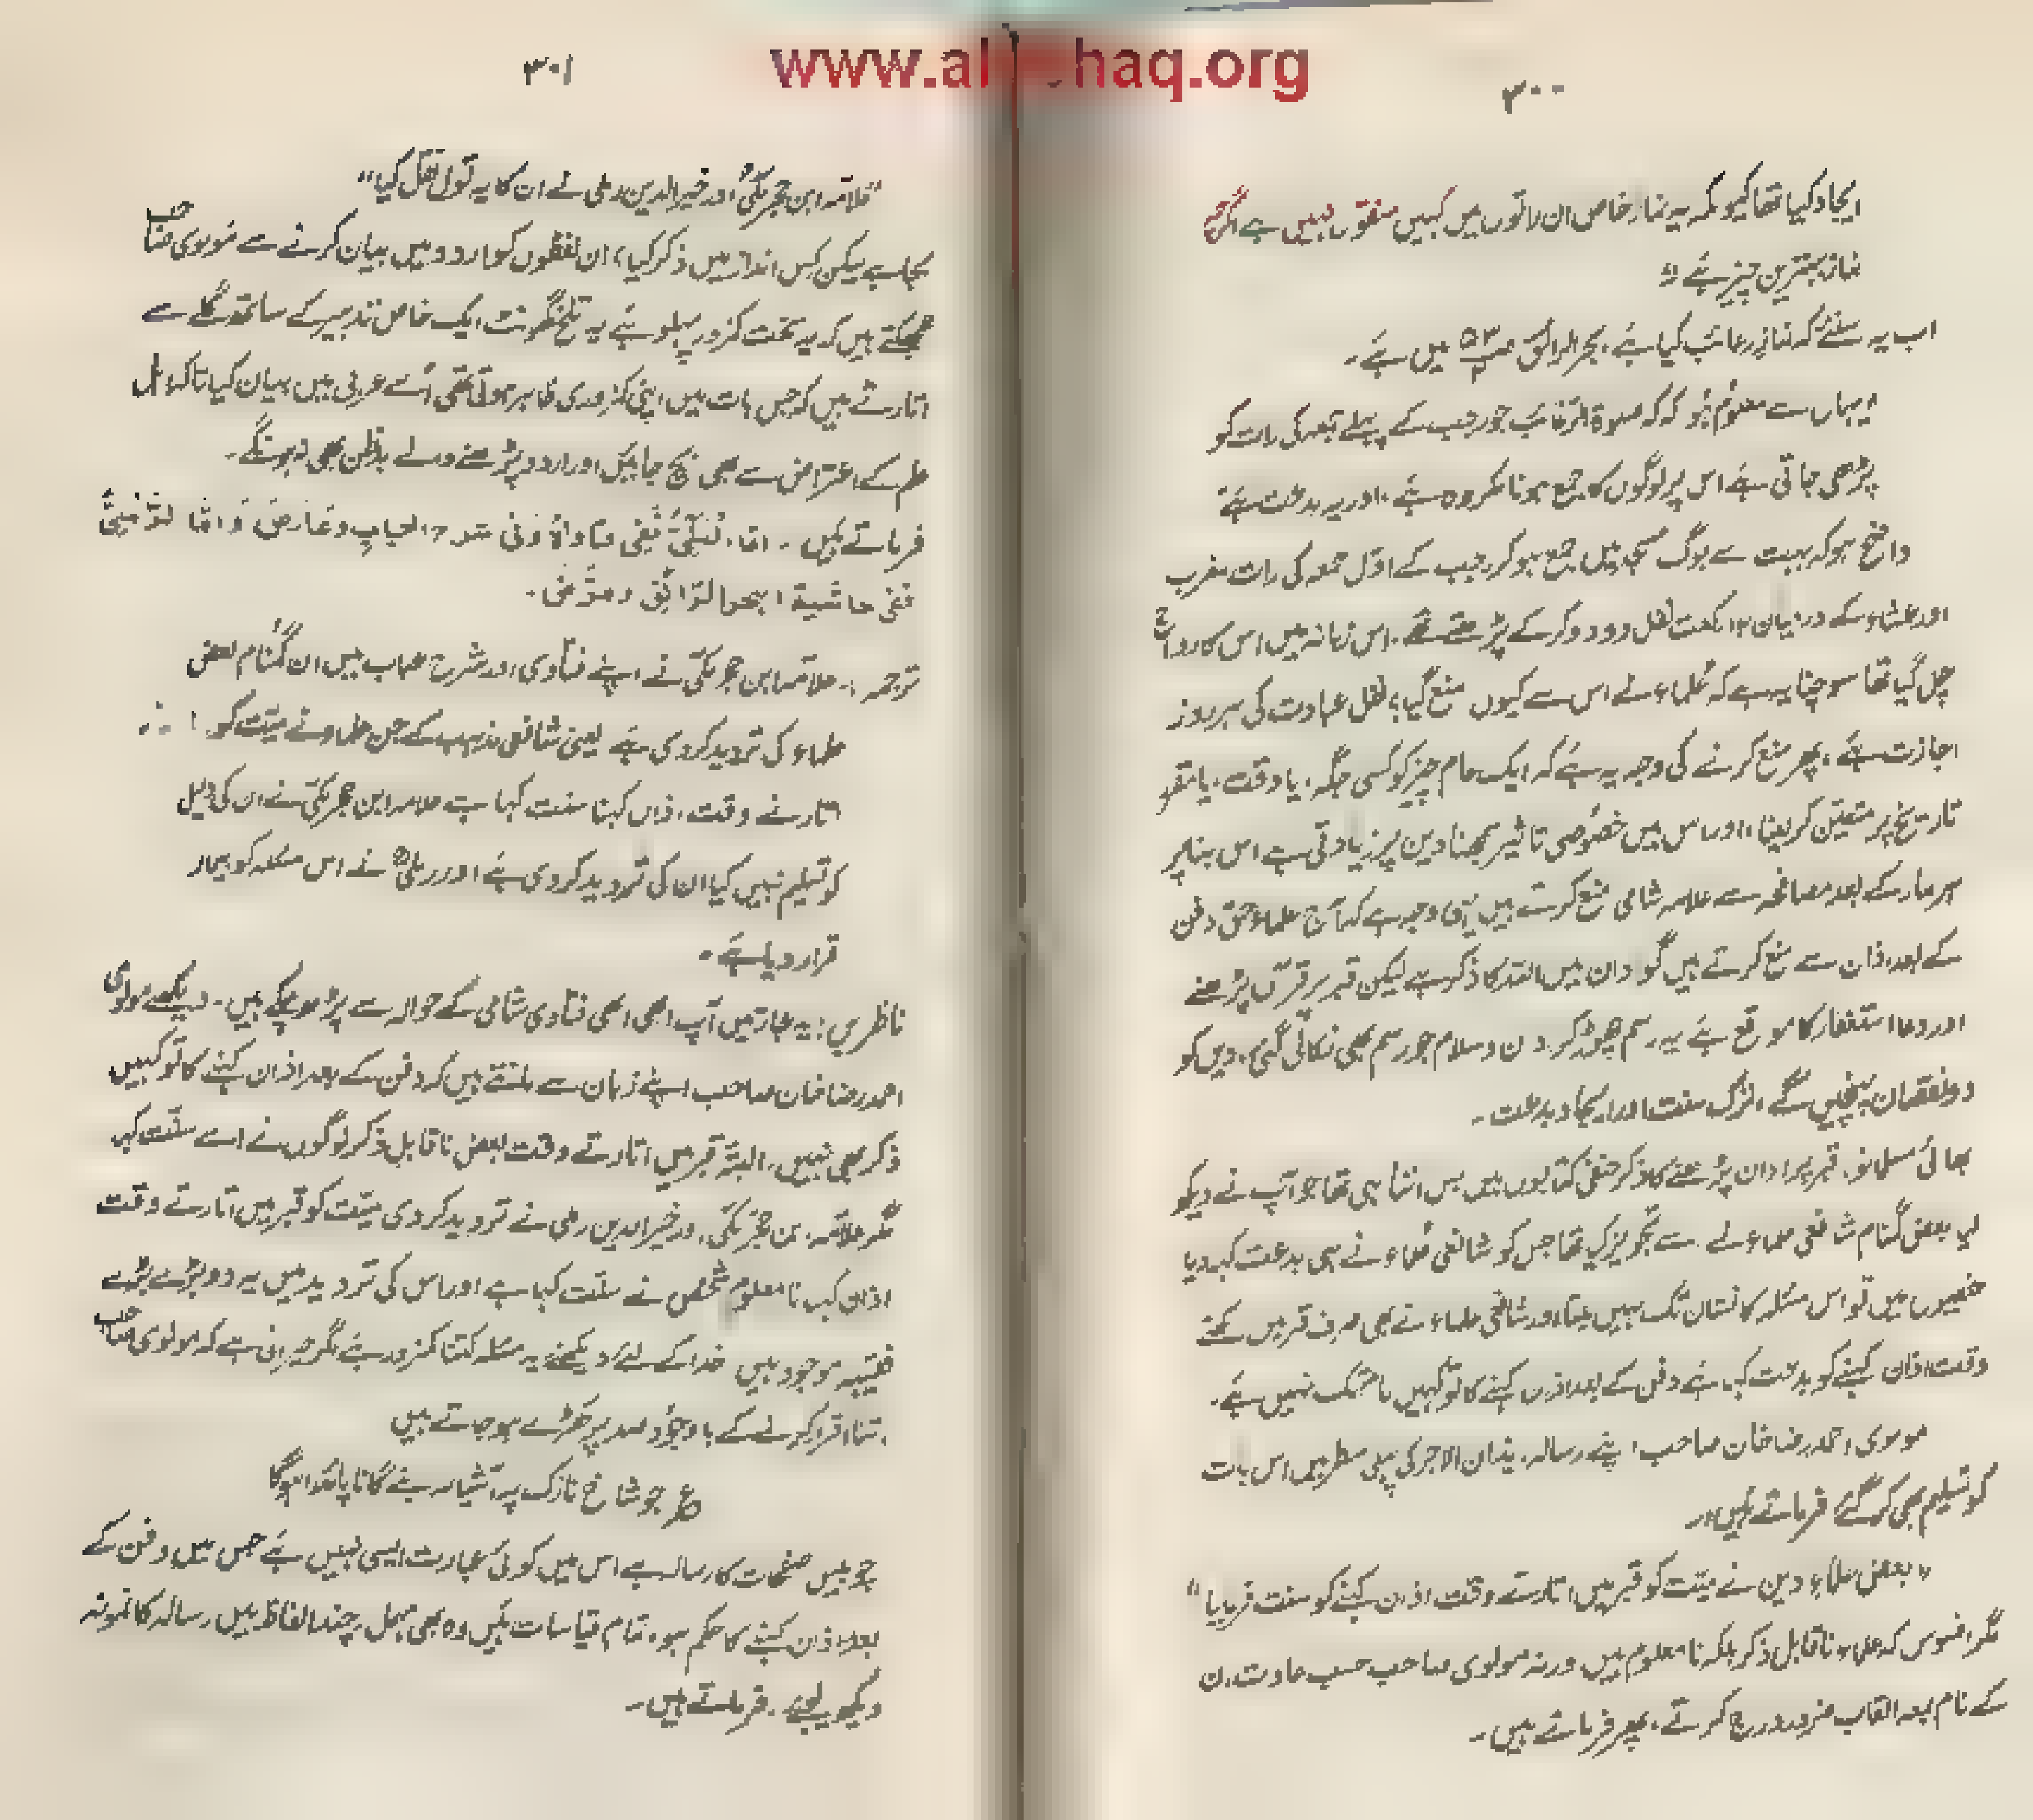 www.al haq.org
۳۰۰
ایجاد کیا تھا کیونکہ یہ نماز خاص ان راتوں میں کہیں منقول نہیں ہے اگرچہ
نماز بہترین چیز ہے ؛؛
اب یہ سنئے کہ نماز رغائب کیا ہے ، بحر الرائق ص۵۲ میں ہے ۔
یہاں سے معلوم ہوا کہ صلوۃ الرغائب جو رجب کے پہلے جمعہ کی رات کو
پڑھی جاتی ہے اس پر لوگوں کا جمع ہونا مکروہ ہے ، اور یہ بدعت ہے
واضح ہو کہ بہت سے لوگ مسجد میں جمع ہو کر رجب کے اوّل جمعہ کی رات مغرب
اور عشاء کے درمیان ۱۲ رکعت نفل دو دو کر کے پڑھتے تھے ، اس زمانہ میں اس کا رواج
چل گیا تھا سوچنا یہ ہے کہ علماء نے اس سے کیوں منع کیا ؟ نفل عبادت کی ہر روز
اجازت ہے ، پھر منع کرنے کی وجہ یہ ہے کہ ایک عام چیز کو کسی جگہ ، یا وقت ، یا مقرر
تاریخ پر متعیّن کر لینا ، اور اس میں خصوصی تاثیر سمجھنا دین پر زیادتی ہے اس بنا پر
ہر نماز کے بعد مصافحہ سے علامہ شامی منع کرتے ہیں یہی وجہ ہے کہ آج علماء حق دفن
کے بعد اذان سے منع کرتے ہیں گو اذان میں اللہ کا ذکر ہے لیکن قبر پر قرآن پڑھنے
اور دعا استغفار کا موقع ہے یہ رسم چھوڑ کر اذن و سلام جو رسم بھی نکالی گئی ، دین کو
دو نقصان پہنچیں گے ، ترک سنت اور ایجاد بدعت ۔
بھائی مسلمانو ، قبر پر اذان پڑھنے کا ذکر حنفی کتابوں میں بس اتنا ہی تھا جو آپ نے دیکھ
لیا بعض گمنام شافعی علماء نے اسے تجویز کیا تھا جس کو شافعی علماء نے ہی بدعت کہہ دیا
حنفیوں میں تو اس مسئلہ کا نشان تک نہیں ملتا اور شافعی علماء نے بھی صرف قبر میں رکھتے
وقت اذان کہنے کو بدعت کہا ہے دفن کے بعد اذان کہنے کا تو کہیں نام تک نہیں ہے ۔
مولوی احمد رضا خان صاحب اپنے رسالہ ایذان الاجر کی پہلی سطر میں اس بات
کو تسلیم بھی کر گئے فرماتے ہیں :۔
" بعض علماء دین نے میّت کو قبر میں اتارتے وقت اذان کہنے کو سنت فرمایا "
مگر افسوس کہ علماء ناقابل ذکر بلکہ نامعلوم ہیں ورنہ مولوی صاحب حسب عادت ان
کے نام بمعہ القاب ضرور درج کرتے ، پھر فرماتے ہیں ۔
۳۰۱
"علامہ ابن حجر مکی اور خیر الدین رملی نے ان کا یہ قول نقل کیا"
بجا ہے لیکن کس انداز میں ذکر کیا ، ان لفظوں کو اردو میں بیان کرنے سے مولوی صاحب
جھجکتے ہیں کہ یہ سخت کمزور پہلو ہے یہ تلخ گھونٹ ایک خاص تدبیر کے ساتھ گلے سے
اتارتے ہیں کہ جس بات میں اپنی کمزوری ظاہر ہوتی تھی اُسے عربی میں بیان کیا تاکہ اہل
علم کے اعتراض سے بھی بچ جائیں اور اردو پڑھنے والے بدظن بھی نہ ہونگے ۔
فرماتے ہیں ۔ اما المکّی ففی فتاواہ وفی شرح العباب وعارض و اما الرّملی
ففی حاشیة البحر الرائق ومرّض ۔
ترجمہ :۔ علامہ ابن حجر مکی نے اپنے فتاوی اور شرح عباب میں ان گمنام بعض
علماء کی تردید کر دی ہے یعنی شافعی مذہب کے جن علماء نے میّت کو
اتارنے وقت اذاں کہنا سنت کہا ہے علامہ ابن حجر مکی نے ان کی دلیل
کو تسلیم نہیں کیا ان کی تردید کر دی ہے اور رملی نے اس مسئلہ کو بیمار
قرار دیا ہے ۔
ناظرین ! یہ عبارتیں آپ ابھی ابھی فتاوی شامی کے حوالہ سے پڑھ چکے ہیں ۔ دیکھئے مولوی
احمد رضا خان صاحب اپنے زبان سے مانتے ہیں کہ دفن کے بعد اذان کہنے کا تو کہیں
ذکر بھی نہیں ، البتہ قبر میں اتارتے وقت بعض ناقابل ذکر لوگوں نے اسے سنّت کہا
مگر علامہ ابن حجر مکی ، اور خیر الدین رملی نے تردید کر دی میّت کو قبر میں اتارتے وقت
اذان کہنا نامعلوم شخص نے سنّت کہا ہے اور اس کی تردید میں یہ دو بڑے بڑے
فقیہہ موجود ہیں خدا کے لئے دیکھئے یہ مسئلہ کتنا کمزور ہے مگر حیرانی ہے کہ مولوی صاحب
اتنا اقرار کرنے کے باوجود ضد پر کھڑے ہو جاتے ہیں
ع جو شاخ نازک پہ آشیانہ بنے گا ناپائدار ہوگا
چوبیس صفحات کا رسالہ ہے اس میں کوئی عبارت ایسی نہیں ہے جس میں دفن کے
بعد اذان کہنے کا حکم ہو ، تمام قیاسات ہیں وہ بھی مہمل ، چند الفاظ میں رسالہ کا نمونہ
دیکھ لیجئے ، فرماتے ہیں ۔